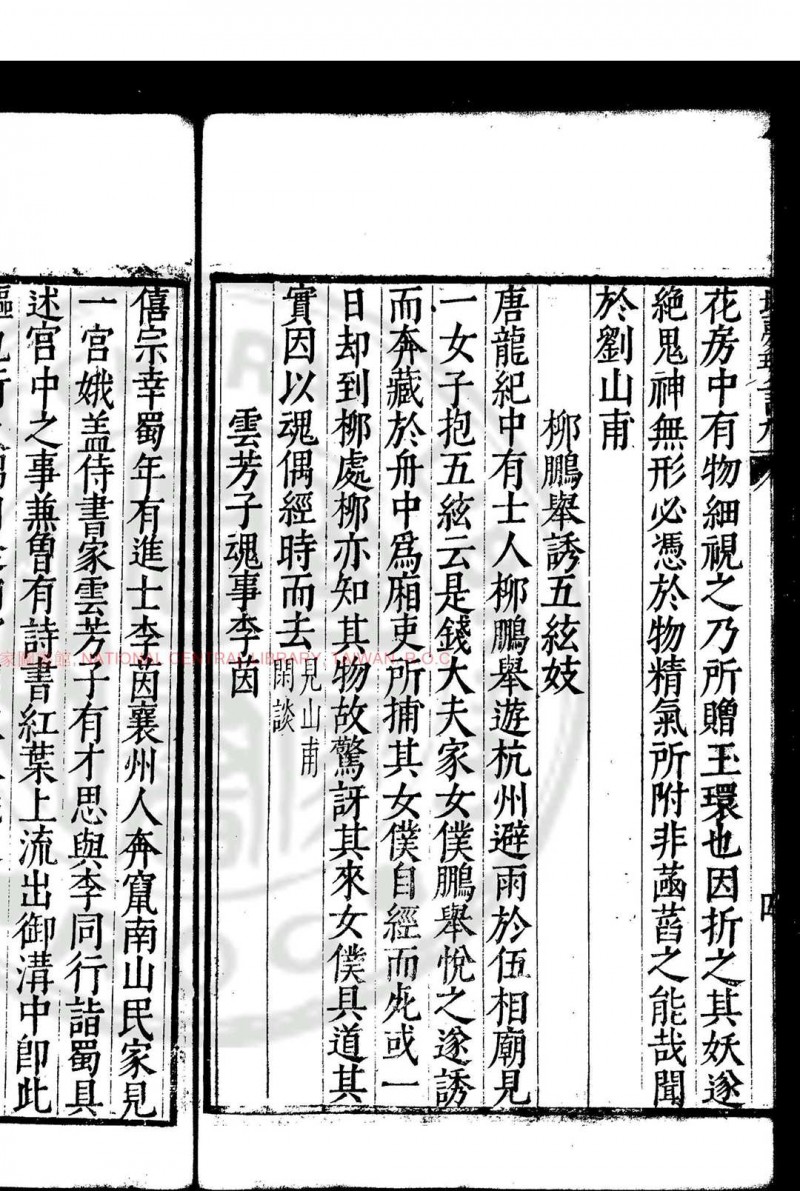 花房中有物細視之乃所贈玉環也因折之其妖遂
絶鬼神無形必憑於物精氣所附非菡萏之能哉聞
於劉山甫
柳鵬舉誘五絃妓
唐龍紀中有士人柳鵬舉遊杭州避雨於伍相廟見
一女子抱五絃云是錢大夫家女僕鵬舉悅之遂誘
而奔藏於舟中爲廂吏所捕其女僕自經而死或一
日却到柳處柳亦知其物故驚訝其來女僕具道其
實因以魂偶經時而去見山甫
閑談
雲芳子魂事李茵
僖宗幸蜀年有進士李茵襄州人奔竄南山民家見
一宮娥盖侍書家雲芳子有才思與李同行詣蜀具
述宮中之事兼曾有詩書紅葉上流出御溝中卽此
NATIONAL CENTRAL LIBRARY, TAIWAN, R.O.C